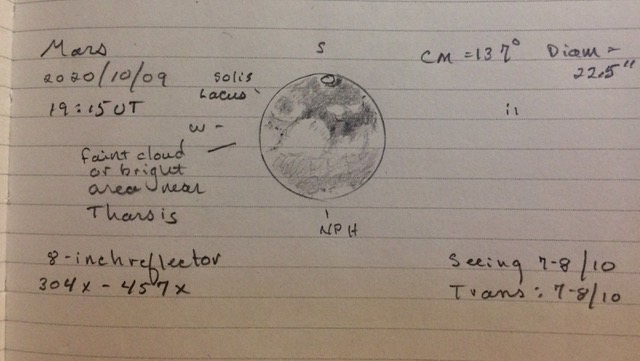 Mars
S
CM = 137° Diam =
22.5"
2020/10/09
Solis
Lacus
19:15 UT
W -
faint cloud
or bright
area near
Tharsis
NPH
8-inch reflector
304x - 457x
Seeing 7-8/10
Trans: 7-8/10